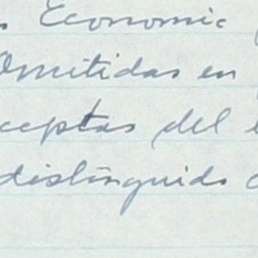 Economic
Omitidas en
ceptas del
distinguido